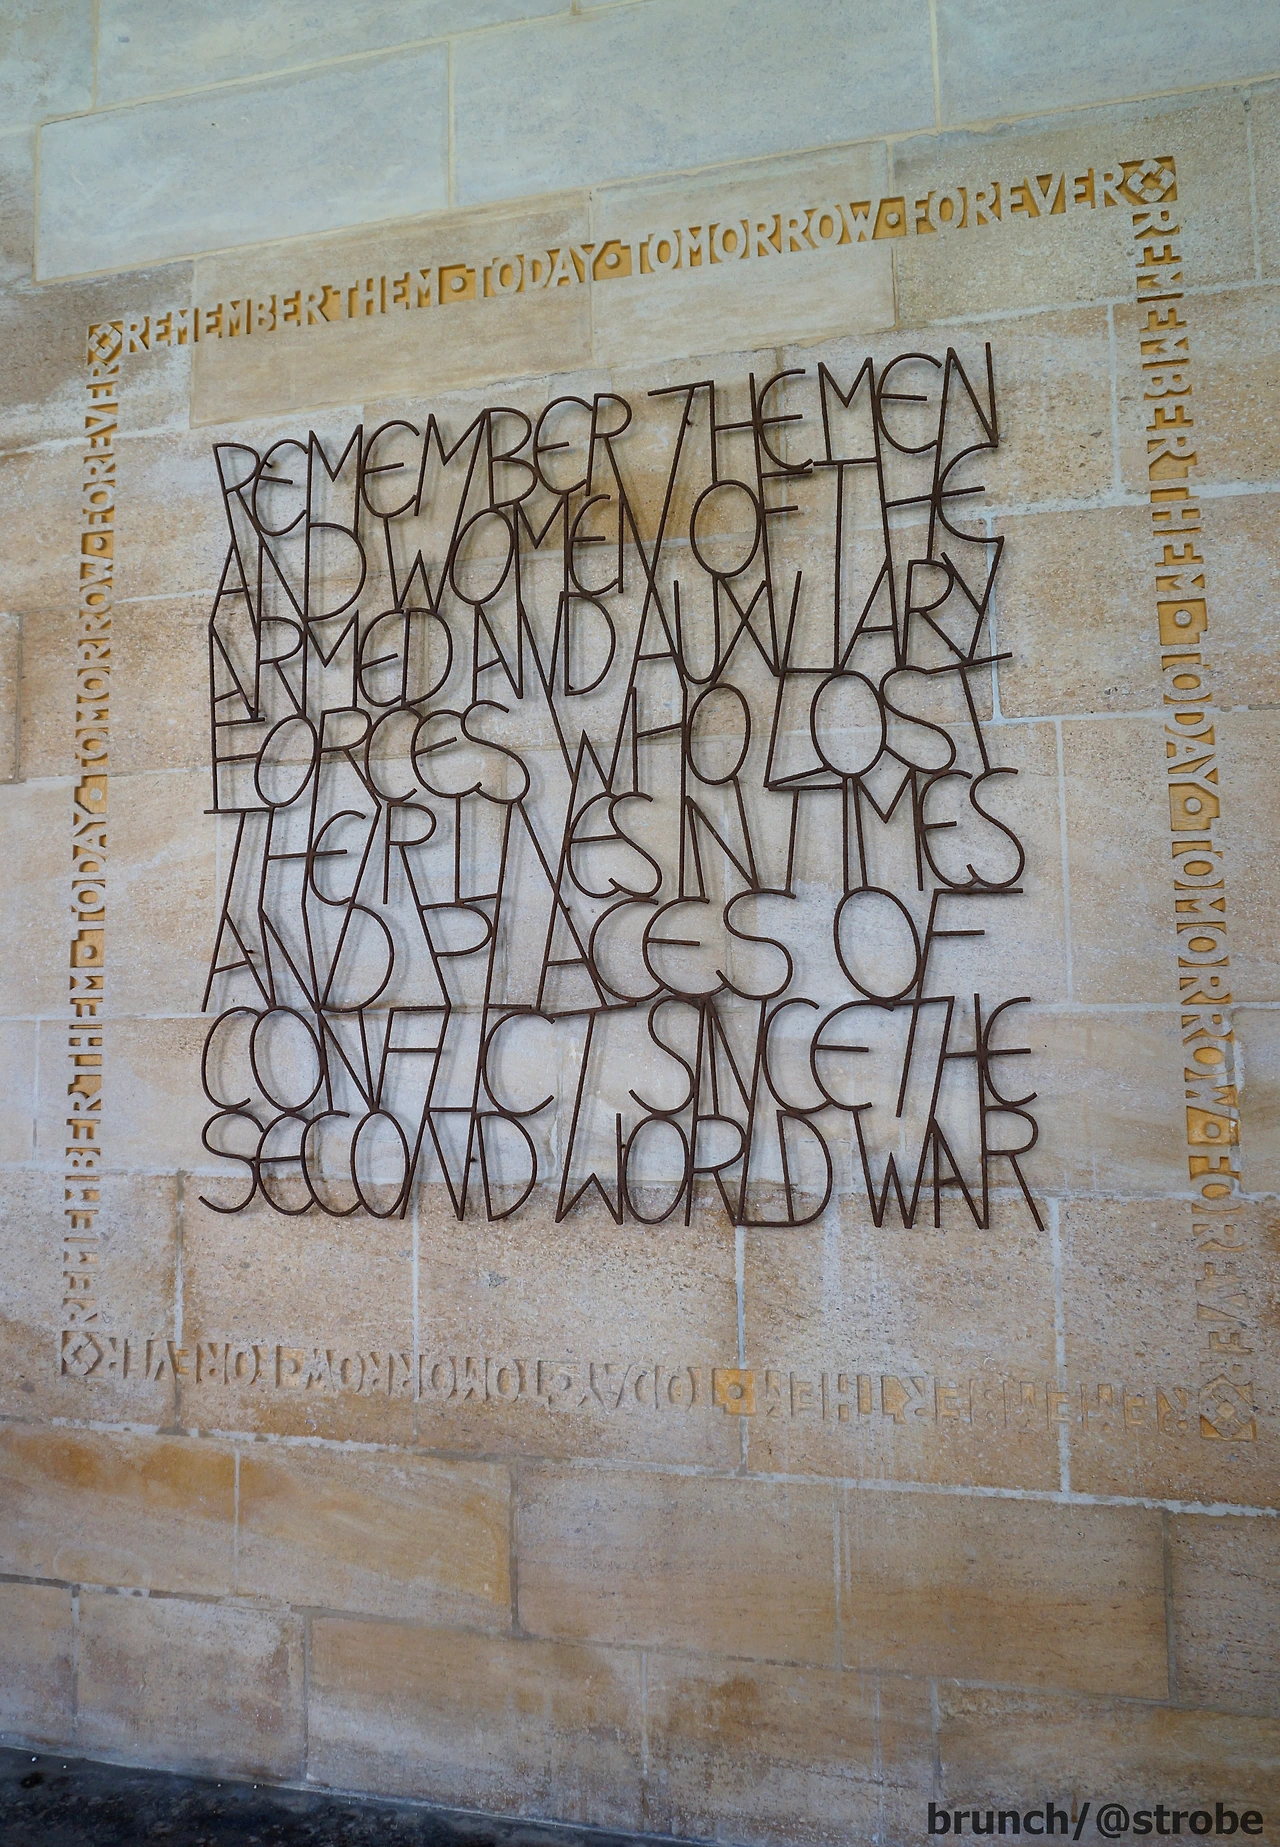 REMEMBER THEM TODAY TOMORROW FOREVER
REMEMBER THEM TODAY TOMORROW FOREVER
REMEMBER THEM TODAY TOMORROW FOREVER
REMEMBER THEM TODAY TOMORROW FOREVER
REMEMBER THE MEN
AND WOMEN OF THE
ARMED AND AUXILIARY
FORCES WHO LOST
THEIR LIVES IN TIMES
AND PLACES OF
CONFLICT SINCE THE
SECOND WORLD WAR
brunch/@strobe